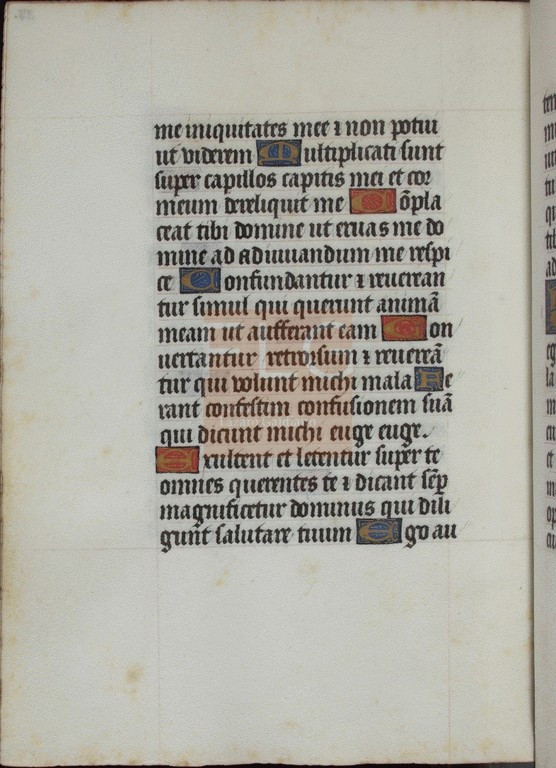 me iniquitates mee ⁊ non potui
ut viderem Multiplicati sunt
super capillos capitis mei et cor
meum dereliquit me Cõpla
ceat tibi domine ut eruas me do
mine ad adiuuandum me respi
ce Confundantur ⁊ reuerean
tur simul qui querunt animã
meam ut aufferant eam Con
uertantur retrorsum ⁊ reuereã
tur qui volunt michi mala Fe
rant confestim confusionem suã
qui dicunt michi euge euge.
Exultent et letentur super te
omnes querentes te ⁊ dicant sẽp
magnificetur dominus qui dili
gunt salutare tuum Ego au